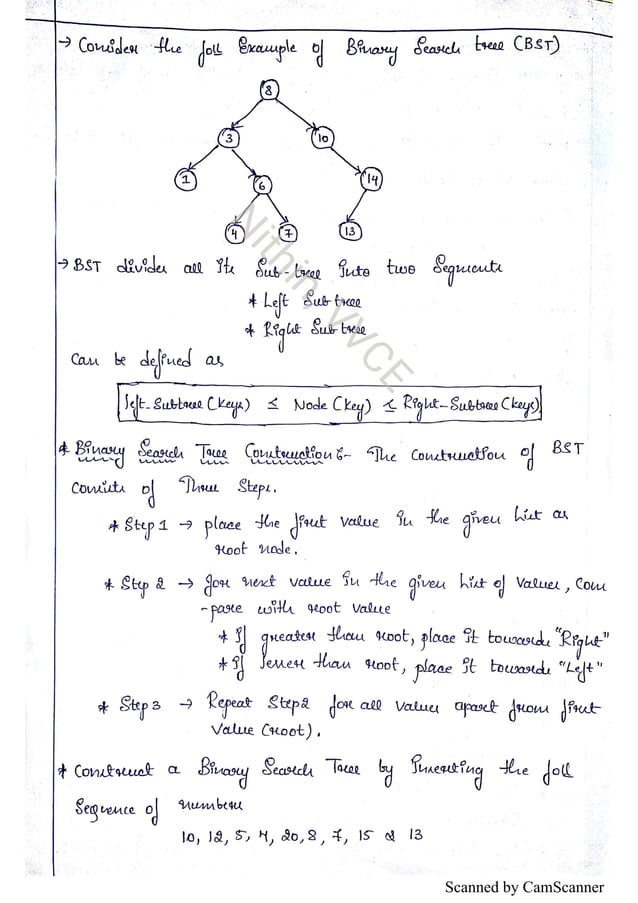 → Consider the foll Example of Binary Search tree (BST)
8
3
10
1
6
14
4
7
13
→ BST divides all its Sub-tree into two Segments
* Left Subtree
* Right Subtree
Can be defined as
left-Subtree (Keys) ≤ Node (Key) ≤ Right-Subtree (Keys)
* Binary Search Tree Construction :- The Construction of BST
Consists of Three Steps.
* Step 1 → place the first value in the given list as
root node.
* Step 2 → for next value in the given list of values, com
-pare with root value
* If greater than root, place it towards "Right"
* If lesser than root, place it towards "Left"
* Step 3 → Repeat Step 2 for all values apart from first
value (root).
* Construct a Binary Search Tree by Inserting the foll
Sequence of numbers
10, 12, 5, 4, 20, 8, 7, 15 & 13
Nithin, VVCE
Scanned by CamScanner